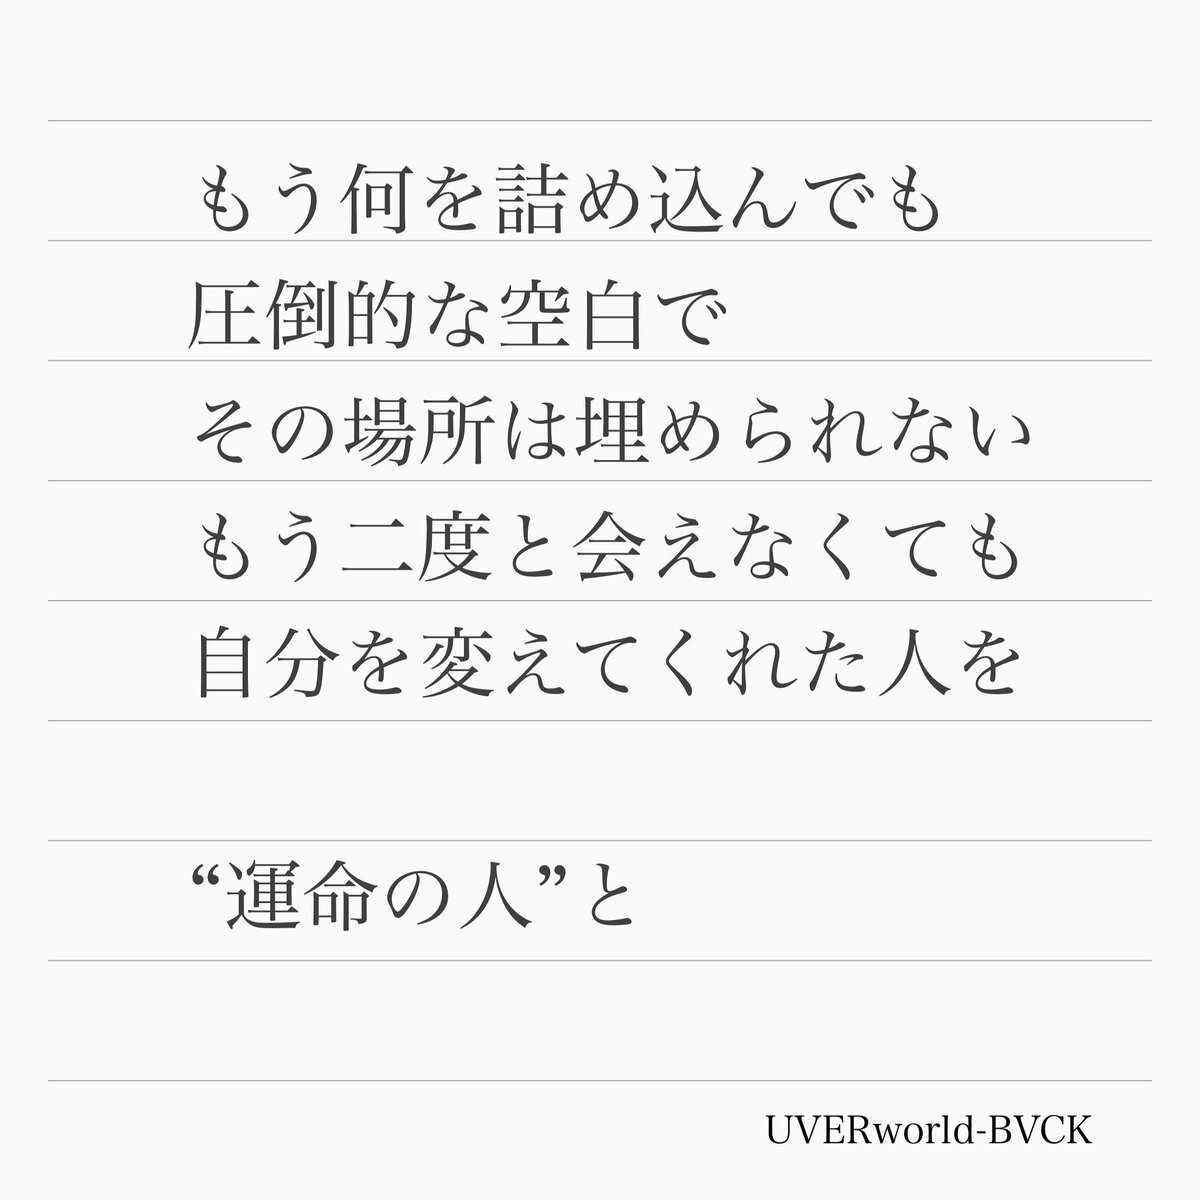 もう何を詰め込んでも
圧倒的な空白で
その場所は埋められない
もう二度と会えなくても
自分を変えてくれた人を
“運命の人”と
UVERworld-BVCK